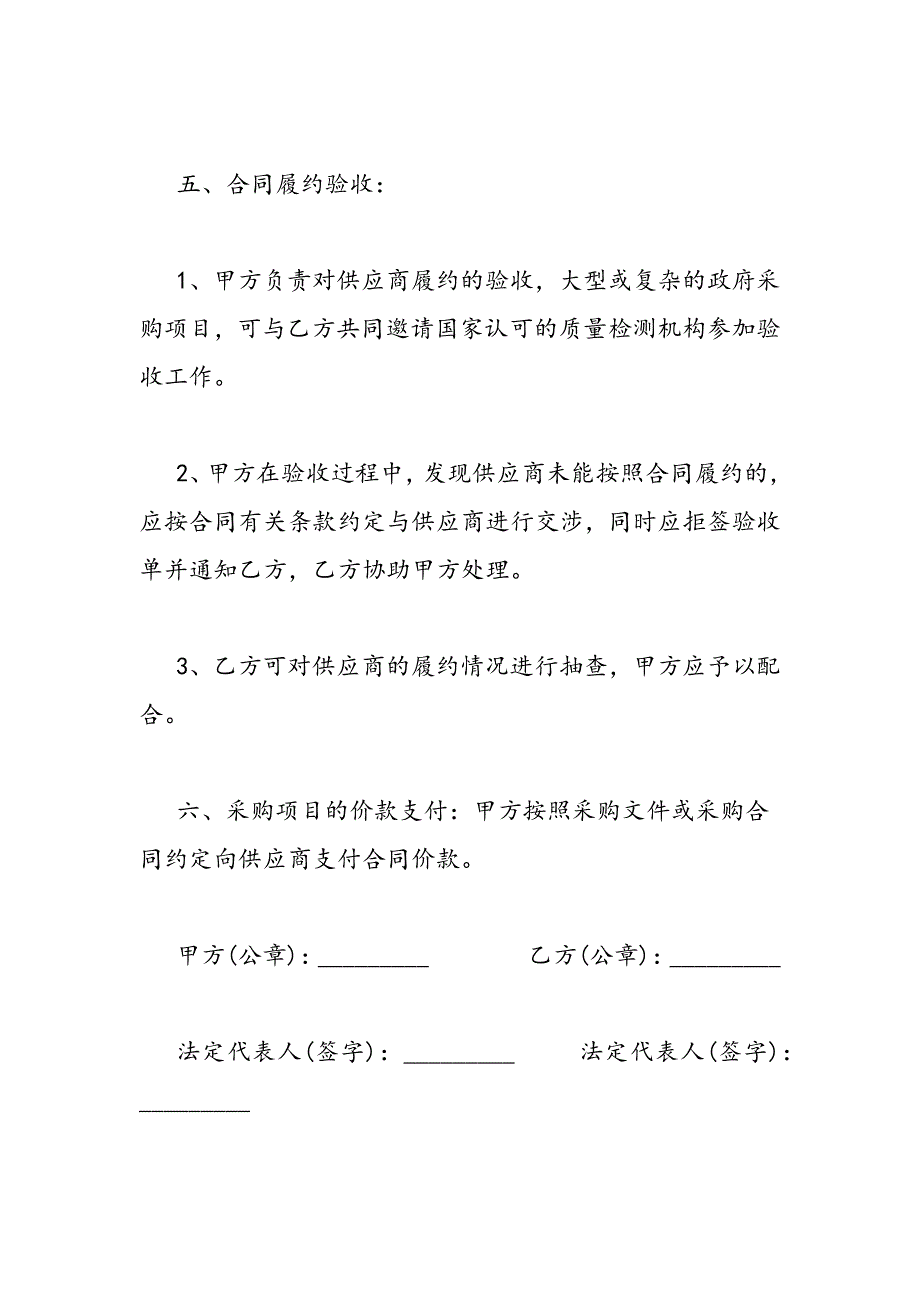 五、合同履约验收：
1、甲方负责对供应商履约的验收，大型或复杂的政府采
购项目，可与乙方共同邀请国家认可的质量检测机构参加验
收工作。
2、甲方在验收过程中，发现供应商未能按照合同履约的，
应按合同有关条款约定与供应商进行交涉，同时应拒签验收
单并通知乙方，乙方协助甲方处理。
3、乙方可对供应商的履约情况进行抽查，甲方应予以配
合。
六、采购项目的价款支付：甲方按照采购文件或采购合
同约定向供应商支付合同价款。
甲方(公章)：_________ 乙方(公章)：_________
法定代表人(签字)：_________ 法定代表人(签字)：
_________